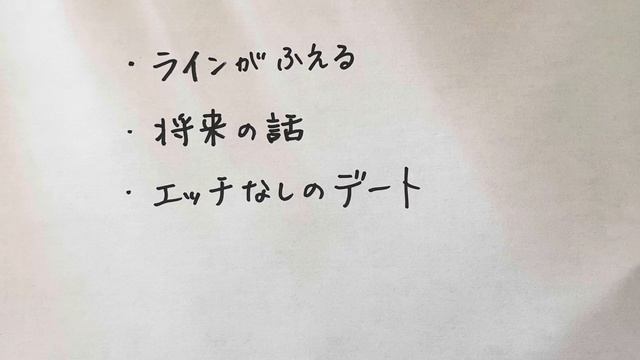 ・ラインがふえる
・将来の話
・エッチなしのデート